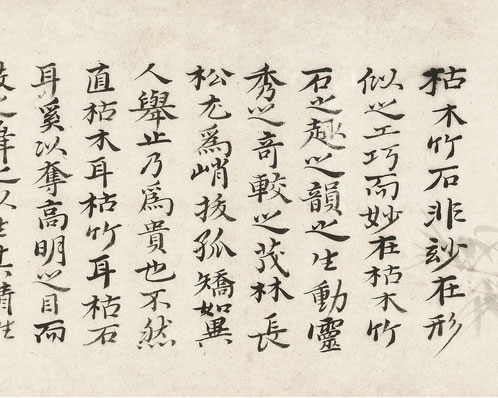 枯木竹石非妙在形
似之工巧而妙在枯木竹
石之趣之韻之生動靈
秀之奇較之茂林長
松尤爲峭拔孤矯如異
人舉止乃爲貴也不然
直枯木耳枯竹耳枯石
耳奚以奪高明之目而